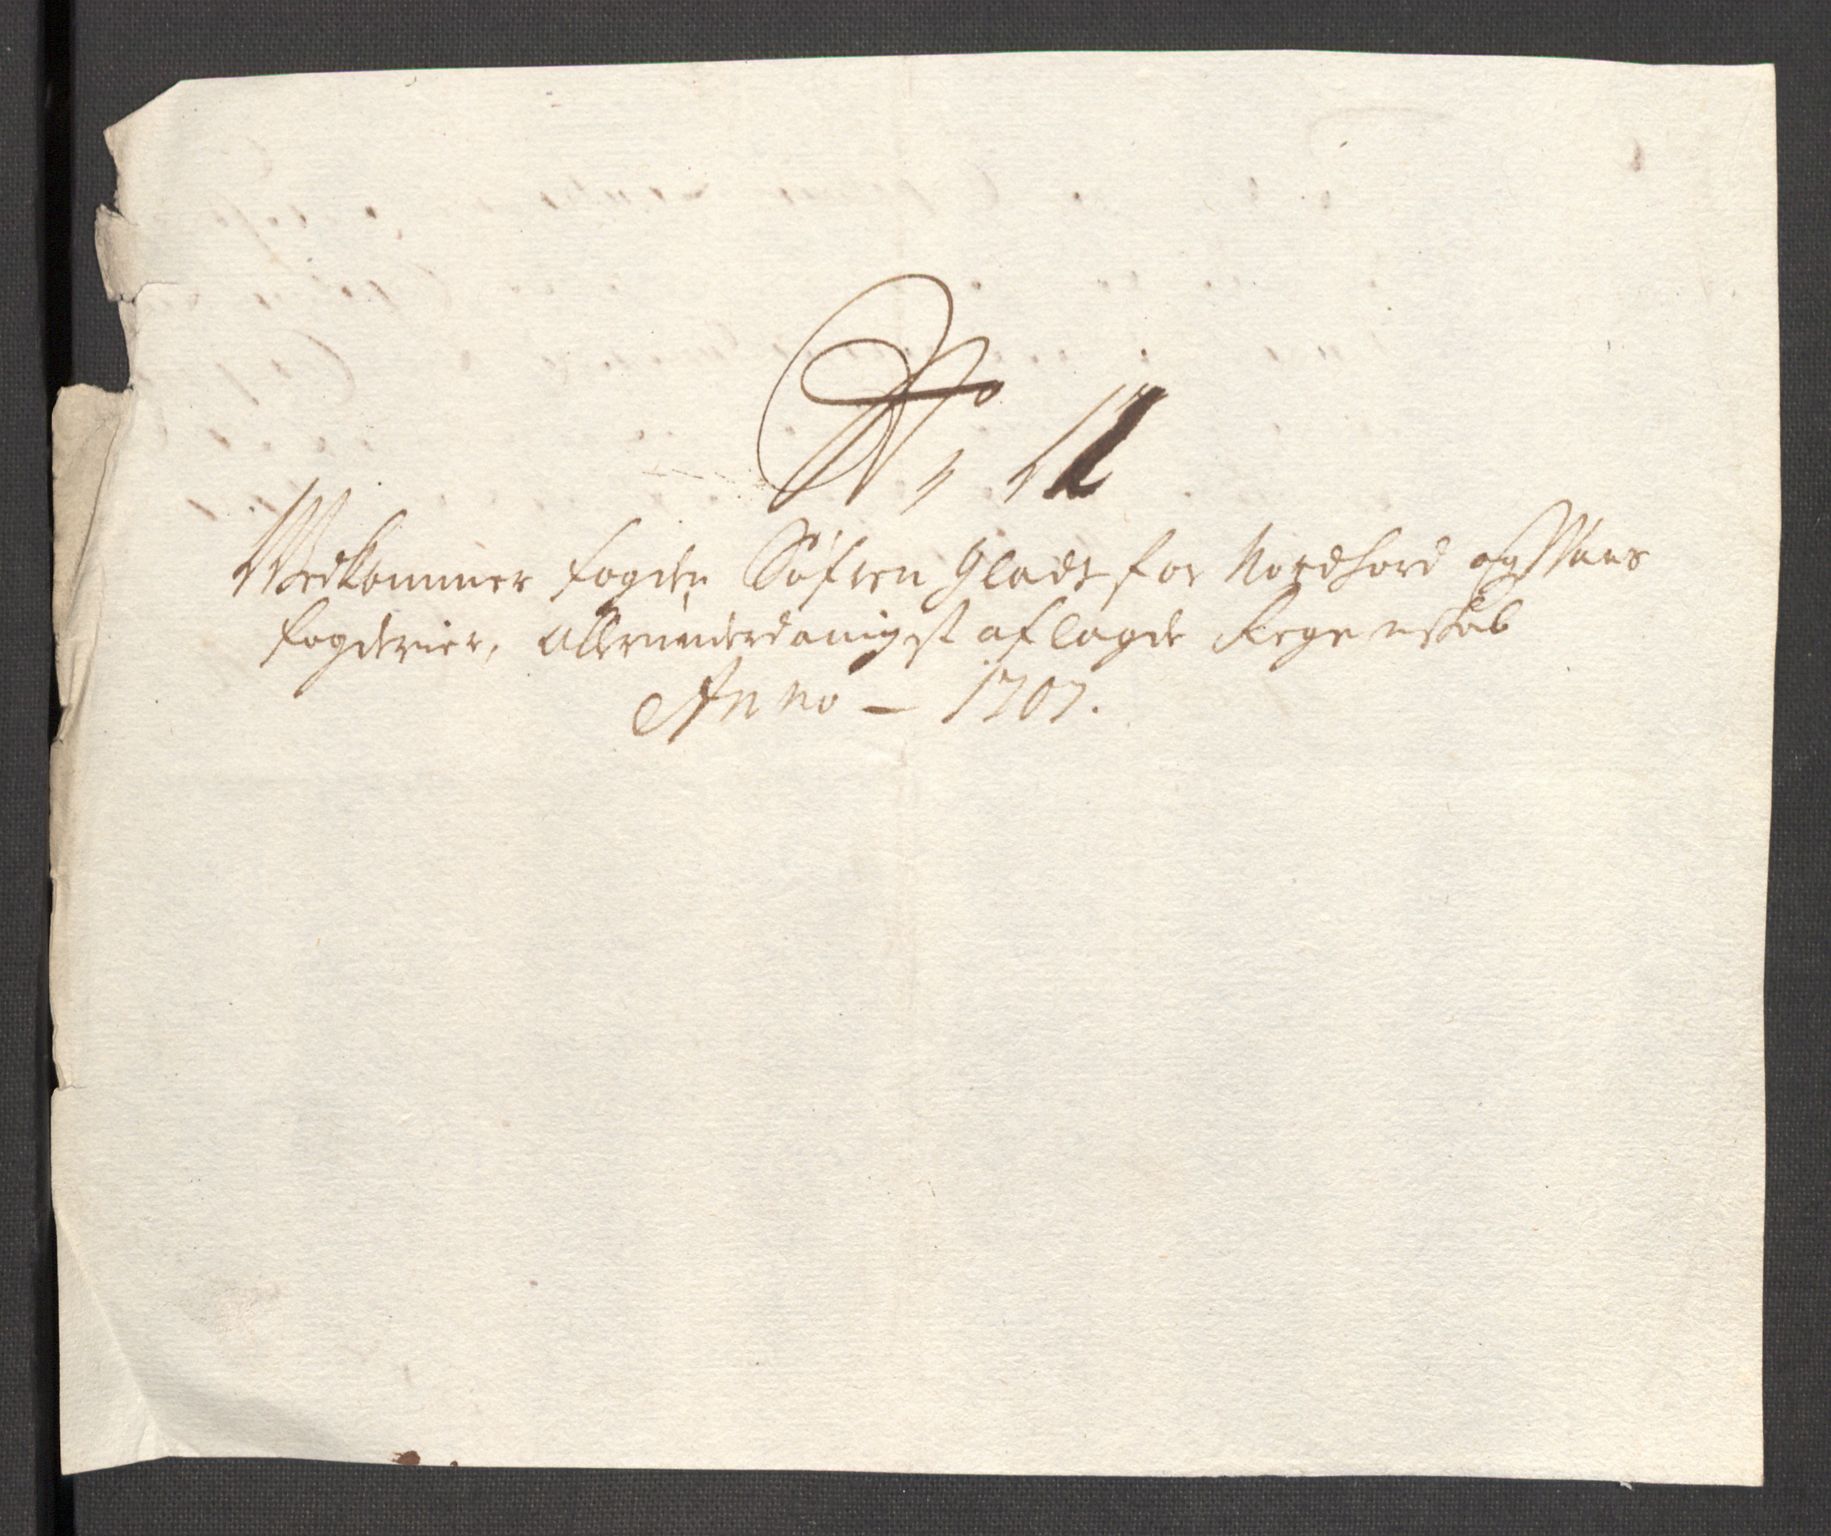 No, 12
Vedkommer fogden Søfren Gladt for Nordhord og Waas
fogderier, allerunderdanigst aflagde Regenskab
Anno – 1707.